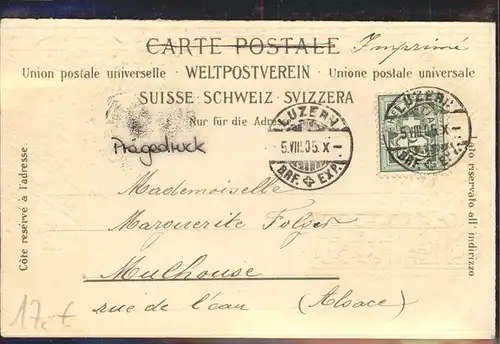 CARTE POSTALE Imprimé
Union postale universelle · WELTPOSTVEREIN · Unione postale universale
SUISSE · SCHWEIZ · SVIZZERA
Nur für die Adresse
LUZERN
5.VIII.05.X
BRF. EXP.
LUZERN
5.VIII.05.X
BRF. EXP.
Prägedruck
Côté réservé à l'adresse
Lato riservato all' indirizzo
Mademoiselle
Marguerite Folger
Mulhouse
rue de l'eau (Alsace)
17.-€